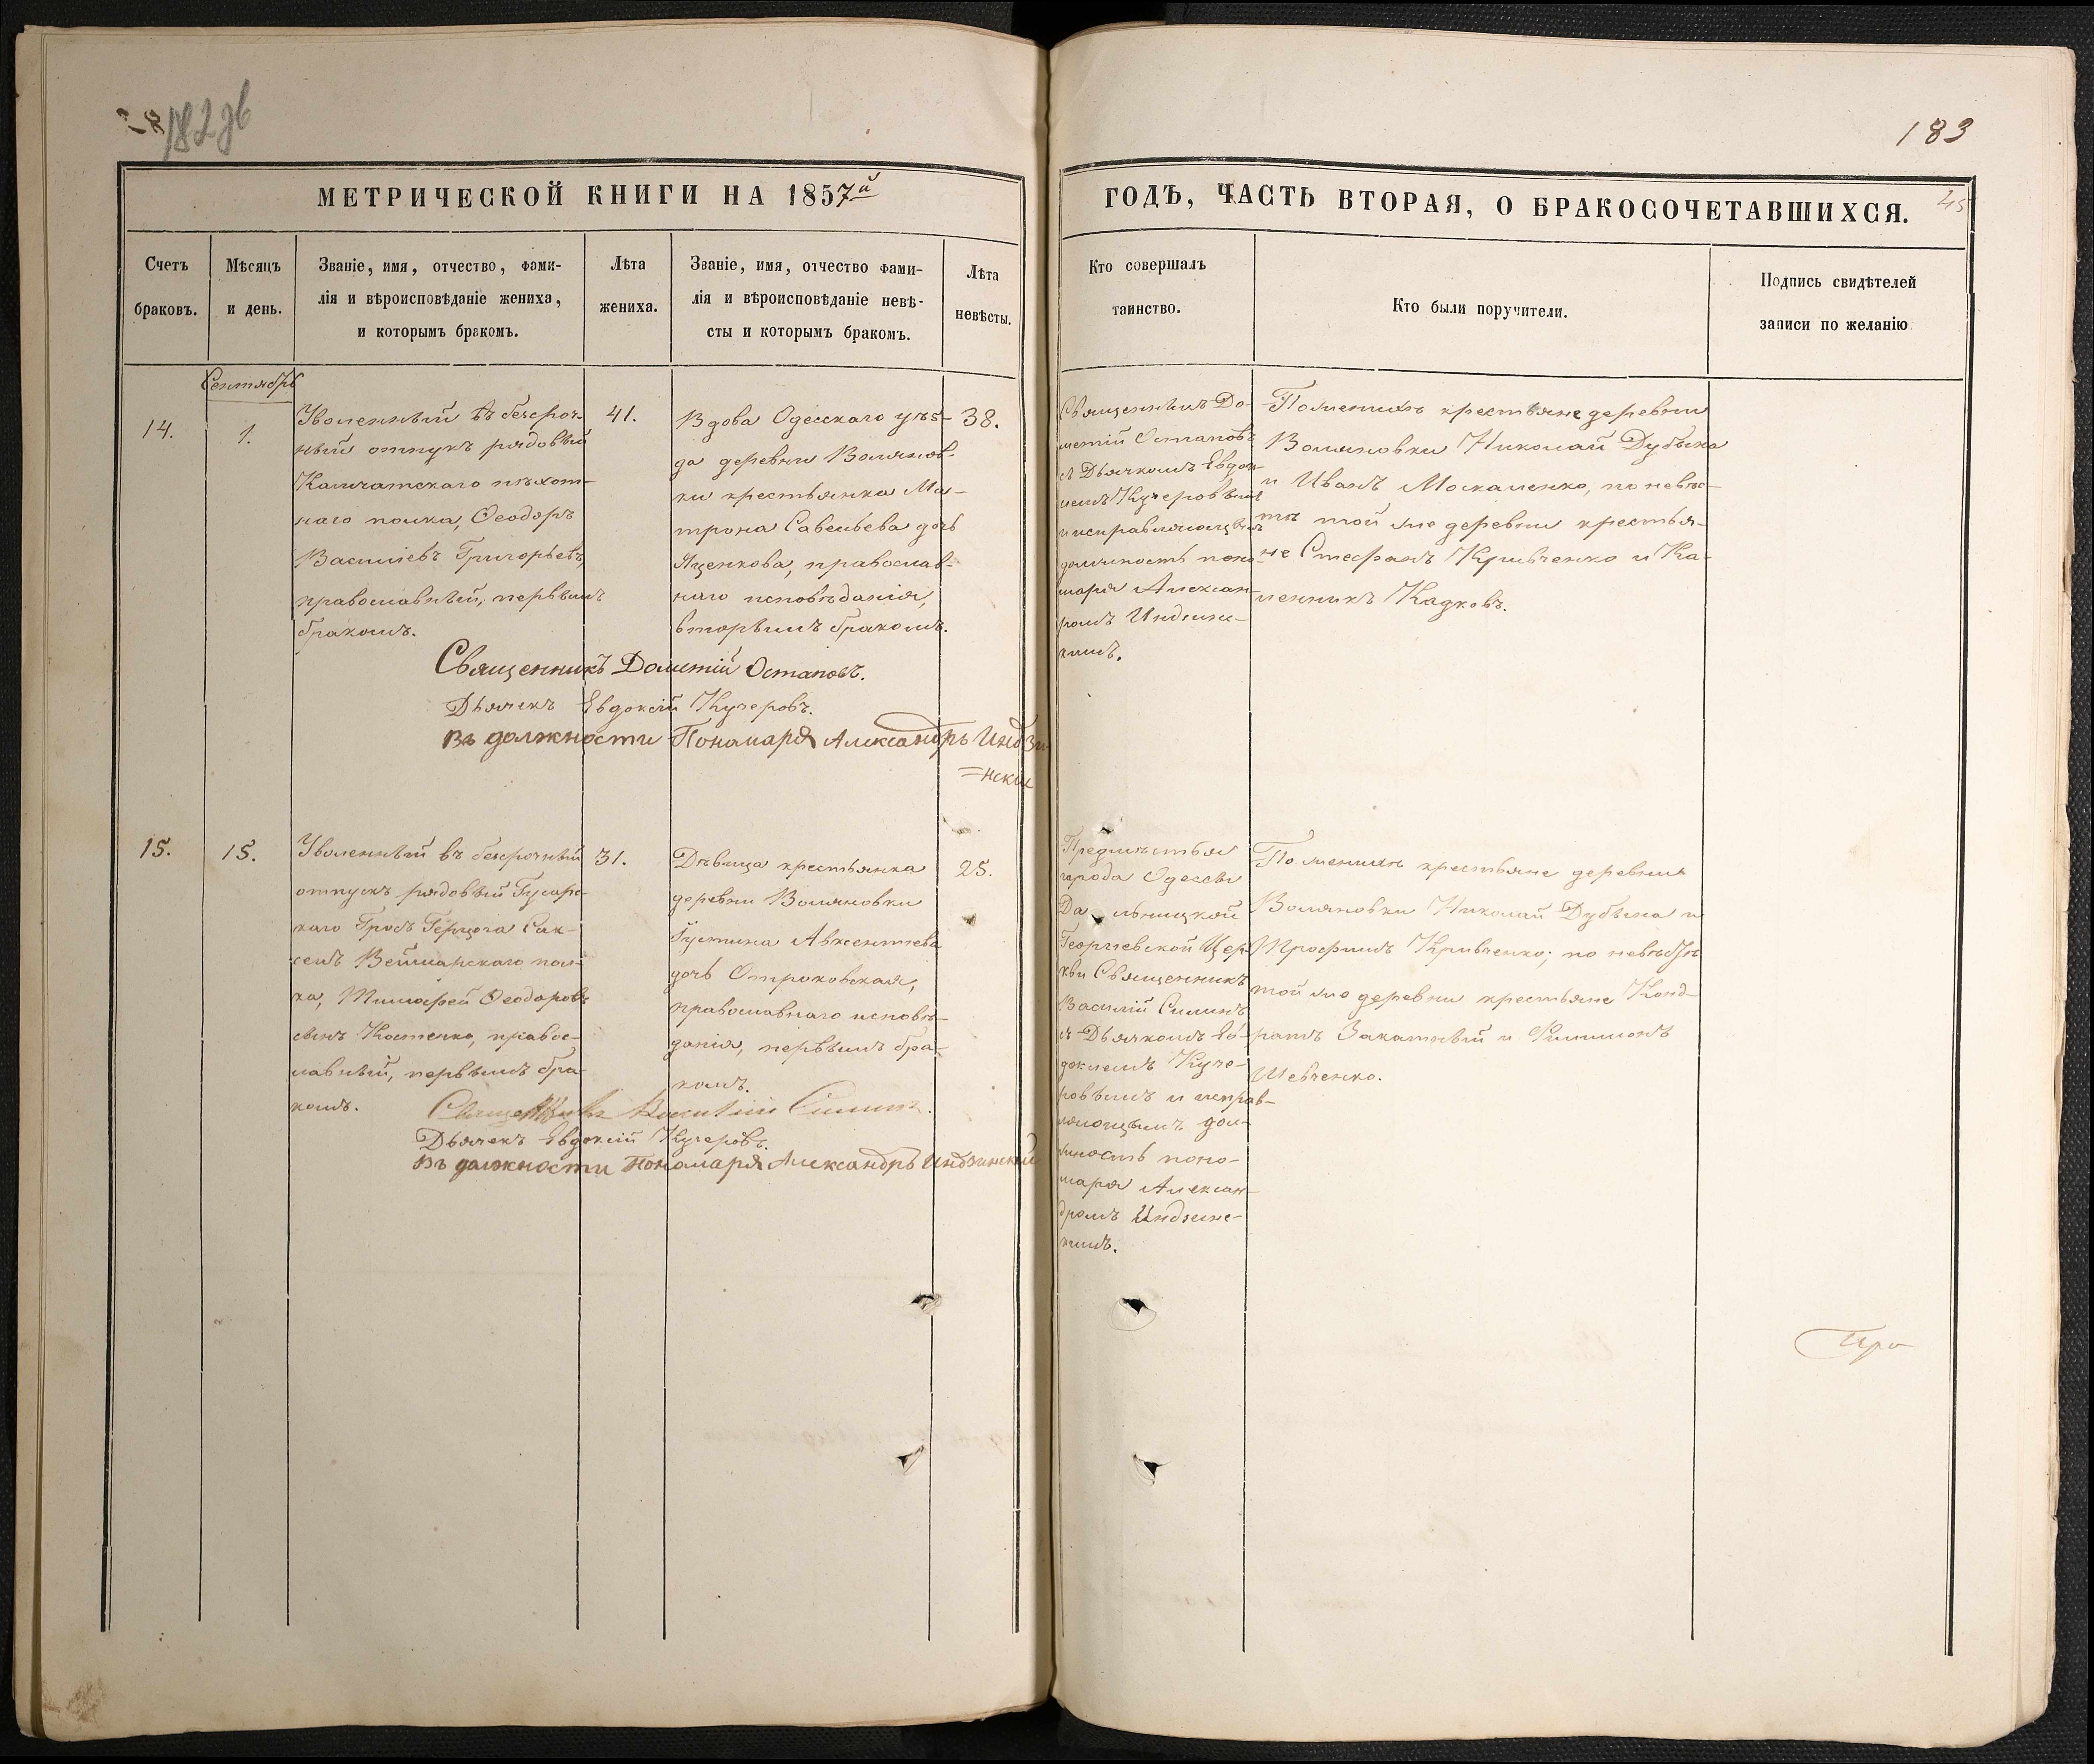 182 зв
183
45
МЕТРИЧЕСКОЙ КНИГИ НА 1857й
ГОДЪ, ЧАСТЬ ВТОРАЯ, О БРАКОСОЧЕТАВШИХСЯ.
Счетъ
браковъ.
Мѣсяцъ
и день.
Званіе, имя, отчество, фами-
лія и вѣроисповѣданіе жениха,
и которымъ бракомъ.
Лѣта
жениха.
Званіе, имя, отчество фами-
лія и вѣроисповѣданіе невѣ-
сты и которымъ бракомъ.
Лѣта
невѣсты.
Кто совершалъ
таинство.
Кто были поручители.
Подпись свидѣтелей
записи по желанію
Сентябрь
14.
1.
Уволенный въ безсроч-
ный отпускъ рядовый
Камчатскаго пѣхот-
наго полка, Ѳеодоръ
Василіевъ Григорьевъ,
православный, первымъ
бракомъ.
41.
Вдова Одесскаго уѣз-
да деревни Воляновки
ки крестьянка Ма-
трона Савельева дочь
Яценкова, православ-
наго исповѣданія,
вторымъ бракомъ.
38.
Священникъ До-
метій Остаповъ
съ Дьячкомъ Евдок-
іемъ Кучеровымъ
и исправляющимъ
должность поно-
маря Алексан-
ромъ Индзинс-
кимъ.
По женихѣ крестьяне деревни
Воляновки Николай Дубына
и Иванъ Москаленко, по невѣс-
тѣ той же деревни крестья-
не Стефанъ Кривченко и Ка-
ленникъ Кадковъ.
Священникъ Дометій Остаповъ.
Дьячекъ Евдокій Кучеровъ.
Въ должности Пономаря Александръ Индзи-
=нскій
15.
15.
Уволенный въ безсрочный
отпускъ рядовый Гусарс-
каго Гросъ Герцога Сак-
сенъ Веймарскаго пол-
ка, Тимофей Ѳеодоровъ
сынъ Костенко, правос-
лавный, первымъ бра-
комъ.
31.
Дѣвица крестьянка
деревни Воляновки
Густина Авксентіева
дочь Отроковская,
православнаго исповѣ-
данія, первымъ бра-
комъ.
25.
Предмѣстья
города Одессы
Дальницкой
Георгіевской Цер-
кви Священникъ
Василій Силинъ
съ Дьячкомъ Ев-
докіемъ Куче-
ровымъ и исправ-
ляющимъ дол-
жность поно-
маря Алексан-
дромъ Индзинс-
кимъ.
По женихѣ крестьяне деревни
Воляновки Николай Дубына и
Трофимъ Кривченко; по невѣстѣ
той же деревни крестьяне Конд-
ратъ Закатный и Филимонъ
Шевченко.
Священникъ Василій Силинъ.
Дьячекъ Евдокій Кучеровъ.
Въ должности Пономаря Александръ Индзинскій